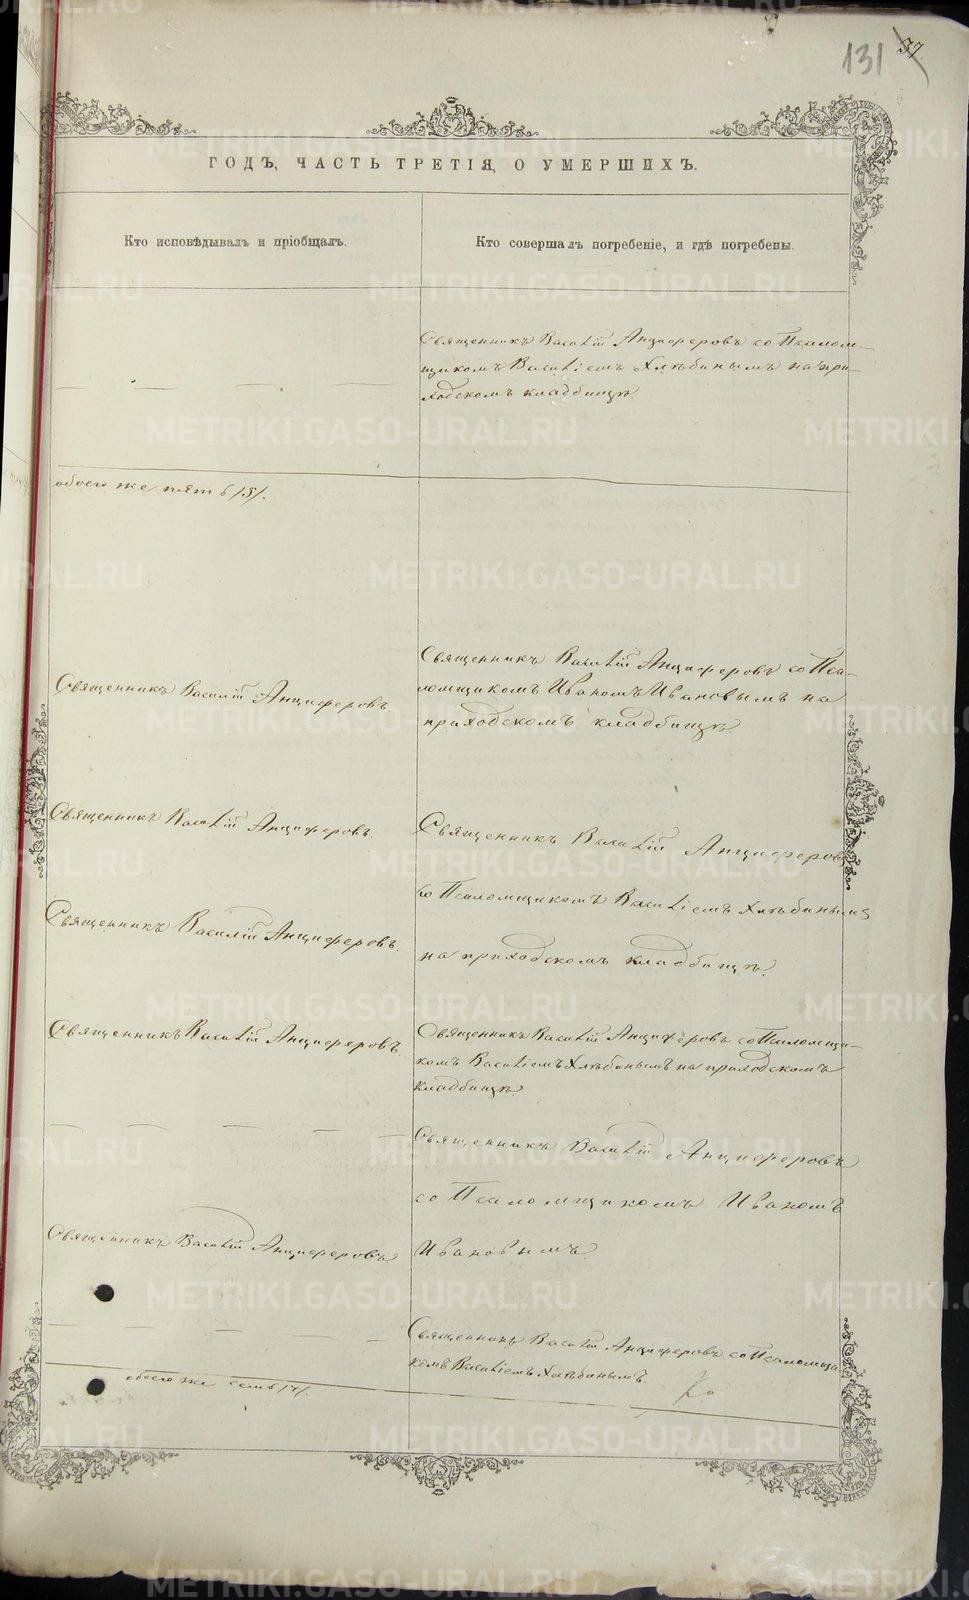 131 37
ГОДЪ, ЧАСТЬ ТРЕТІЯ, О УМЕРШИХЪ.
Кто исповѣдывалъ и пріобщалъ.
Кто совершалъ погребеніе, и гдѣ погребены.
Священникъ Василій Анциферовъ со Псалом-
щикомъ Василіемъ Хлѣбинымъ на при-
ходскомъ кладбищѣ.
обоего же пять /5/.
Священникъ Василій Анциферовъ
Священникъ Василій Анциферовъ со Пса-
ломщикомъ Иваномъ Ивановымъ на
приходскомъ кладбищѣ
Священникъ Василій Анциферовъ.
Священникъ Василій Анциферовъ.
Священникъ Василій Анциферовъ
со Псаломщикомъ Василіемъ Хлѣбинымъ
на приходскомъ кладбищѣ.
Священникъ Василій Анциферовъ.
Священникъ Василій Анциферовъ со Псаломщи-
комъ Василіемъ Хлѣбинымъ на приходскомъ
кладбищѣ.
Священникъ Василій Анциферовъ
Священникъ Василій Анциферовъ
со Псаломщикомъ Иваномъ
Ивановымъ.
Священникъ Василій Анциферовъ со Псаломщи-
комъ Василіемъ Хлѣбинымъ.
обоего же семь /7/.
METRIKI.GASO-URAL.RU